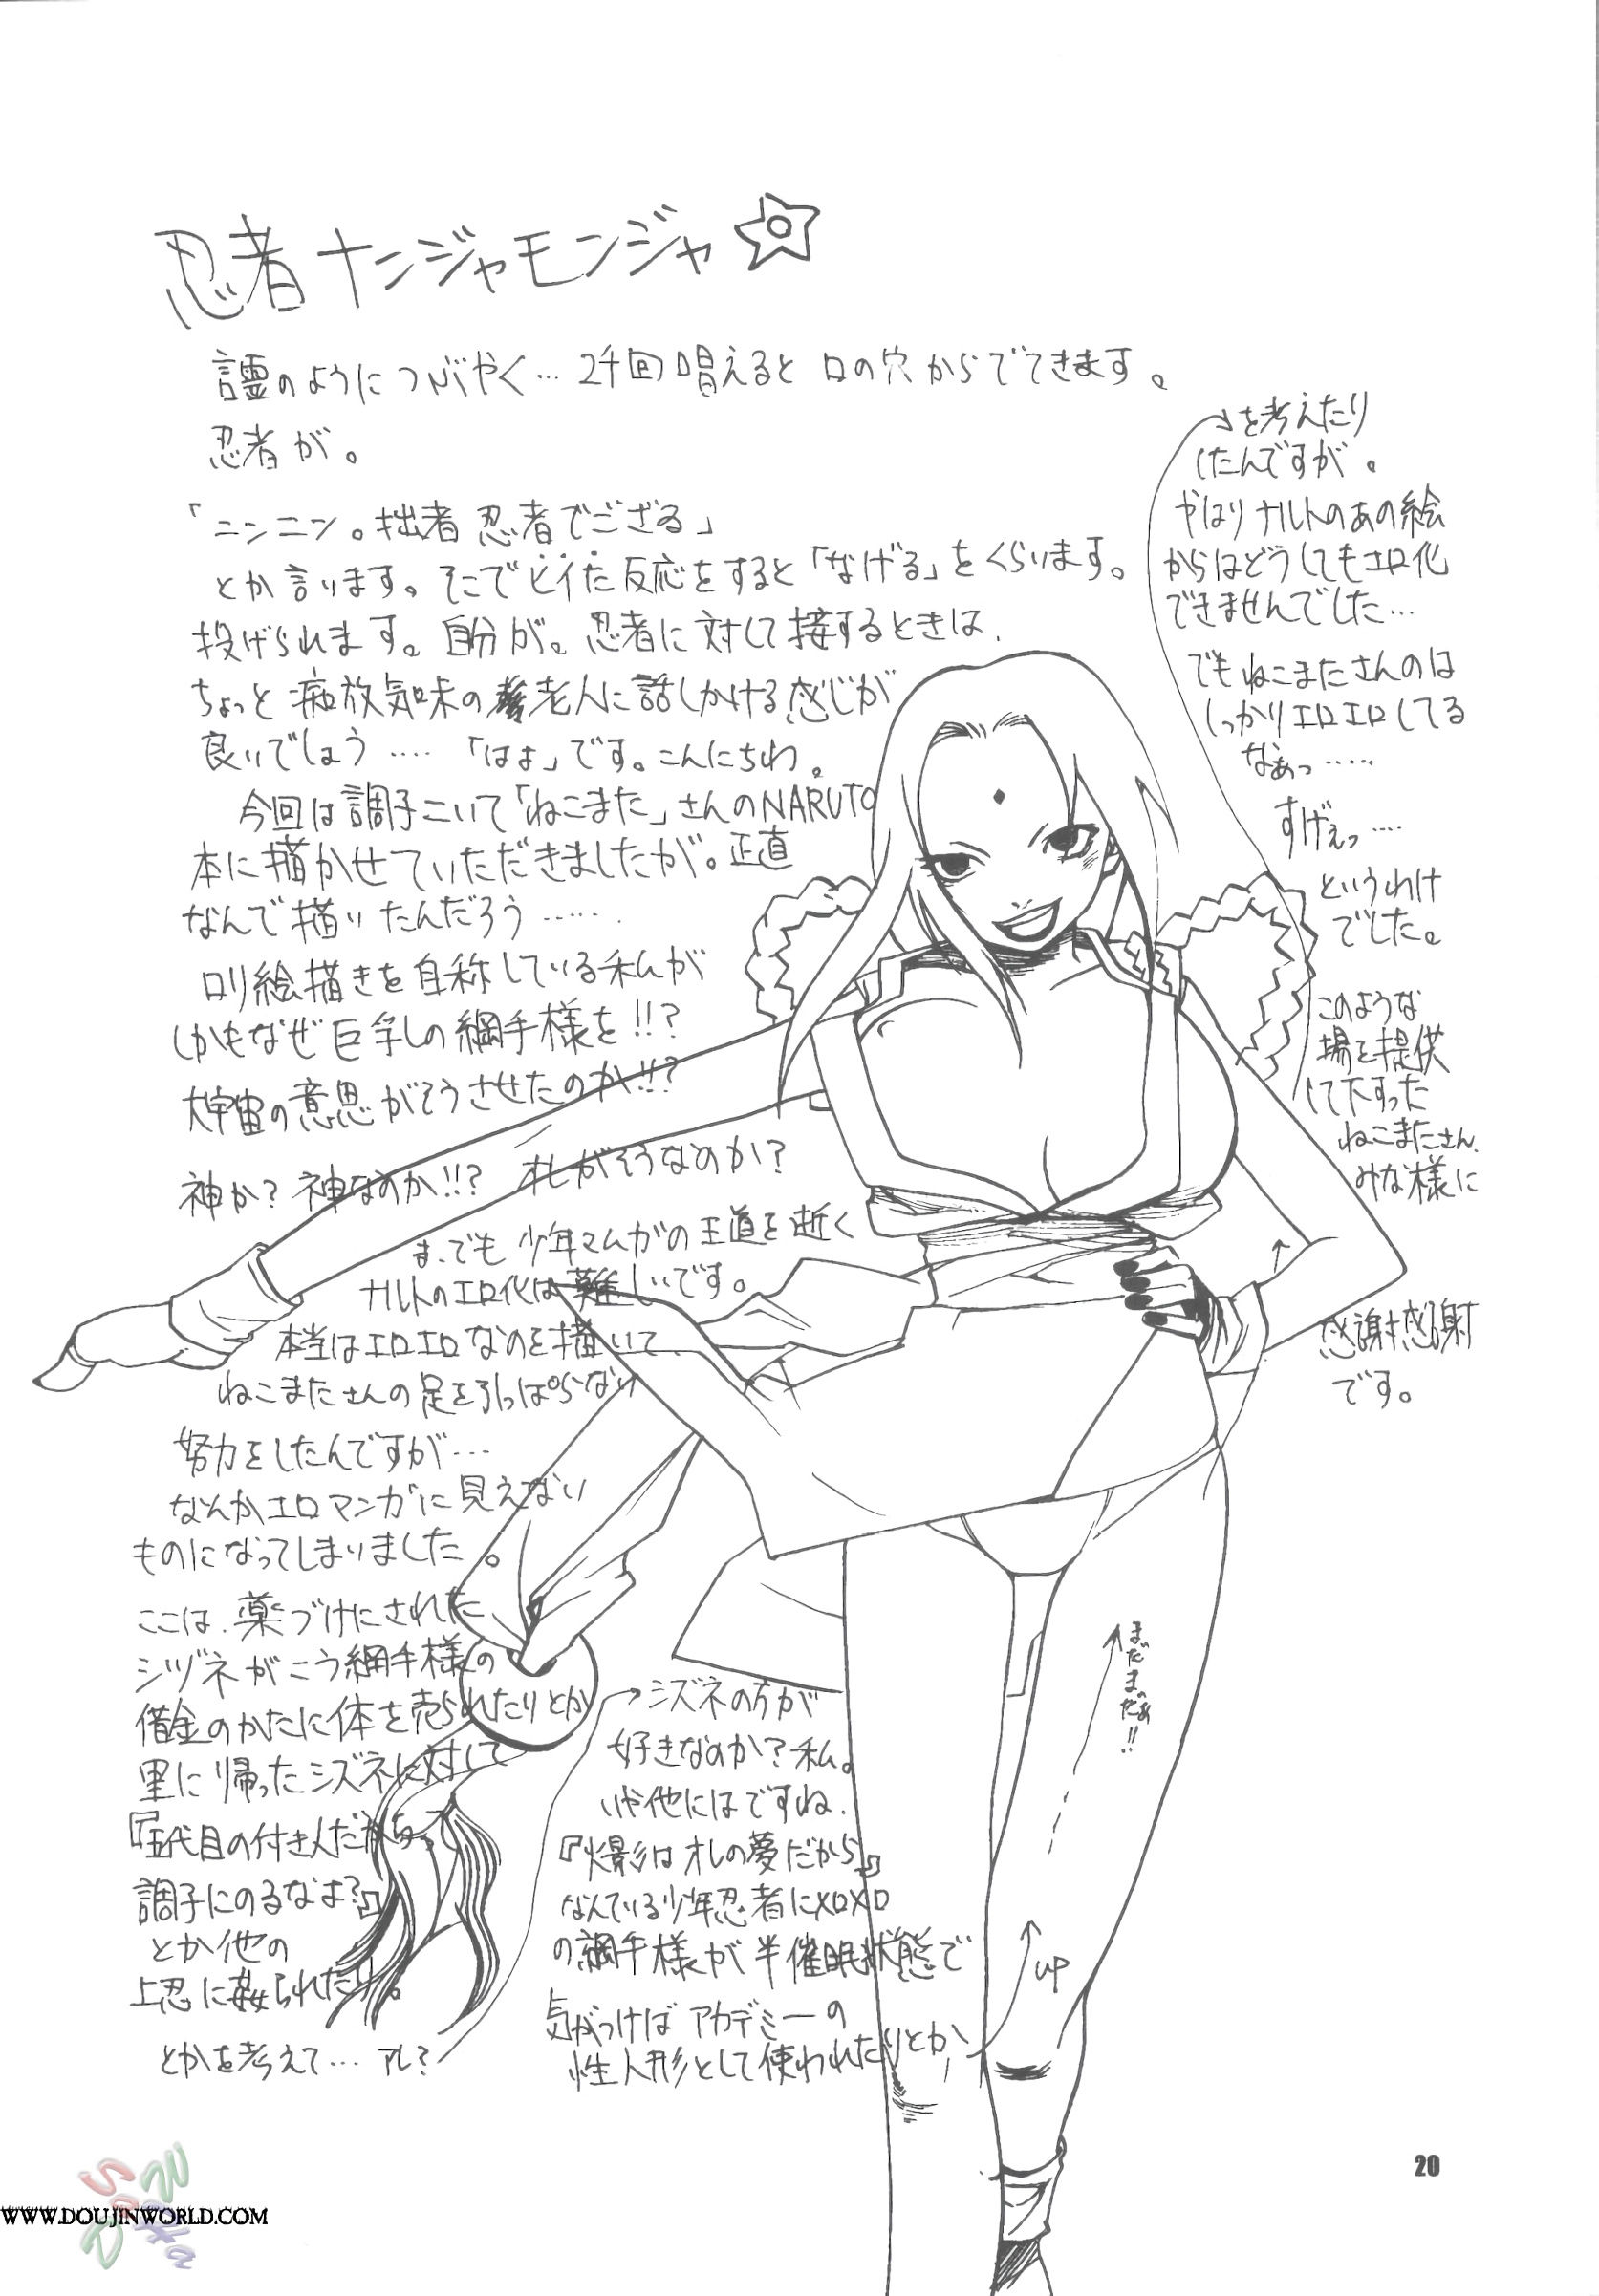 忍者ナンジャモンジャ☆
言霊のようにつぶやく…2千回唱えると 口の穴からでてきます。
忍者が。
「ニンニン。拙者忍者でござる」
とか言います。そこでヒイた反応をすると「なげる」をくらいます。
投げられます。自分が。忍者に対して接するときは、
ちょっと痴放気味の老人に話しかける感じが
良いでしょう……「はょ」です。こんにちわ。
今回は調子こいて「ねこまた」さんのNARUTO
本に描かせていただきましたが。正直
なんで描いたんだろう……
ロリ絵描きを自称している私が
しかもなぜ巨乳の綱手様を!!?
大宇宙の意思がそうさせたのか!!?
神か?神なのか!!? オレがそうなのか?
ま、でも少年マムガの王道を逝く
ナルトのエロ化は難しいです。
本当はエロエロなのを描いて、
ねこまたさんの足を引っぱらない
努力をしたんですが…
なんかエロマンガに見えない
ものになってしまいました。
ここは、薬づけにされた
シヅネがこう綱手様の
借金のかたに体を売られたりとか
里に帰ったシズネに対して
『五代目の付き人だからって
調子にのるなよ?』
とか他の
上忍に姦られたり。
とかを考えて…アレ?
シズネの方が
好きなのか?私。
いや他にはですね、
『火影はオレの夢だから』
なんている少年忍者にメロメロ
の綱手様が半催眠状態で
気がつけばアカデミーの
性人形として使われたりとか、
UP
まだまだのぉ!!
を考えたり
したんですが。
やはりナルトのあの絵
からはどうしてもエロ化
できませんでした…
でもねこまたさんのは
しっかりエロエロしてる
なぁっ……
すげぇっ……
というわけ
でした。
このような
場を提供
して下すった
ねこまたさん、
みな様に
感謝感謝
です。
20
WWW.DOUJINWORLD.COM